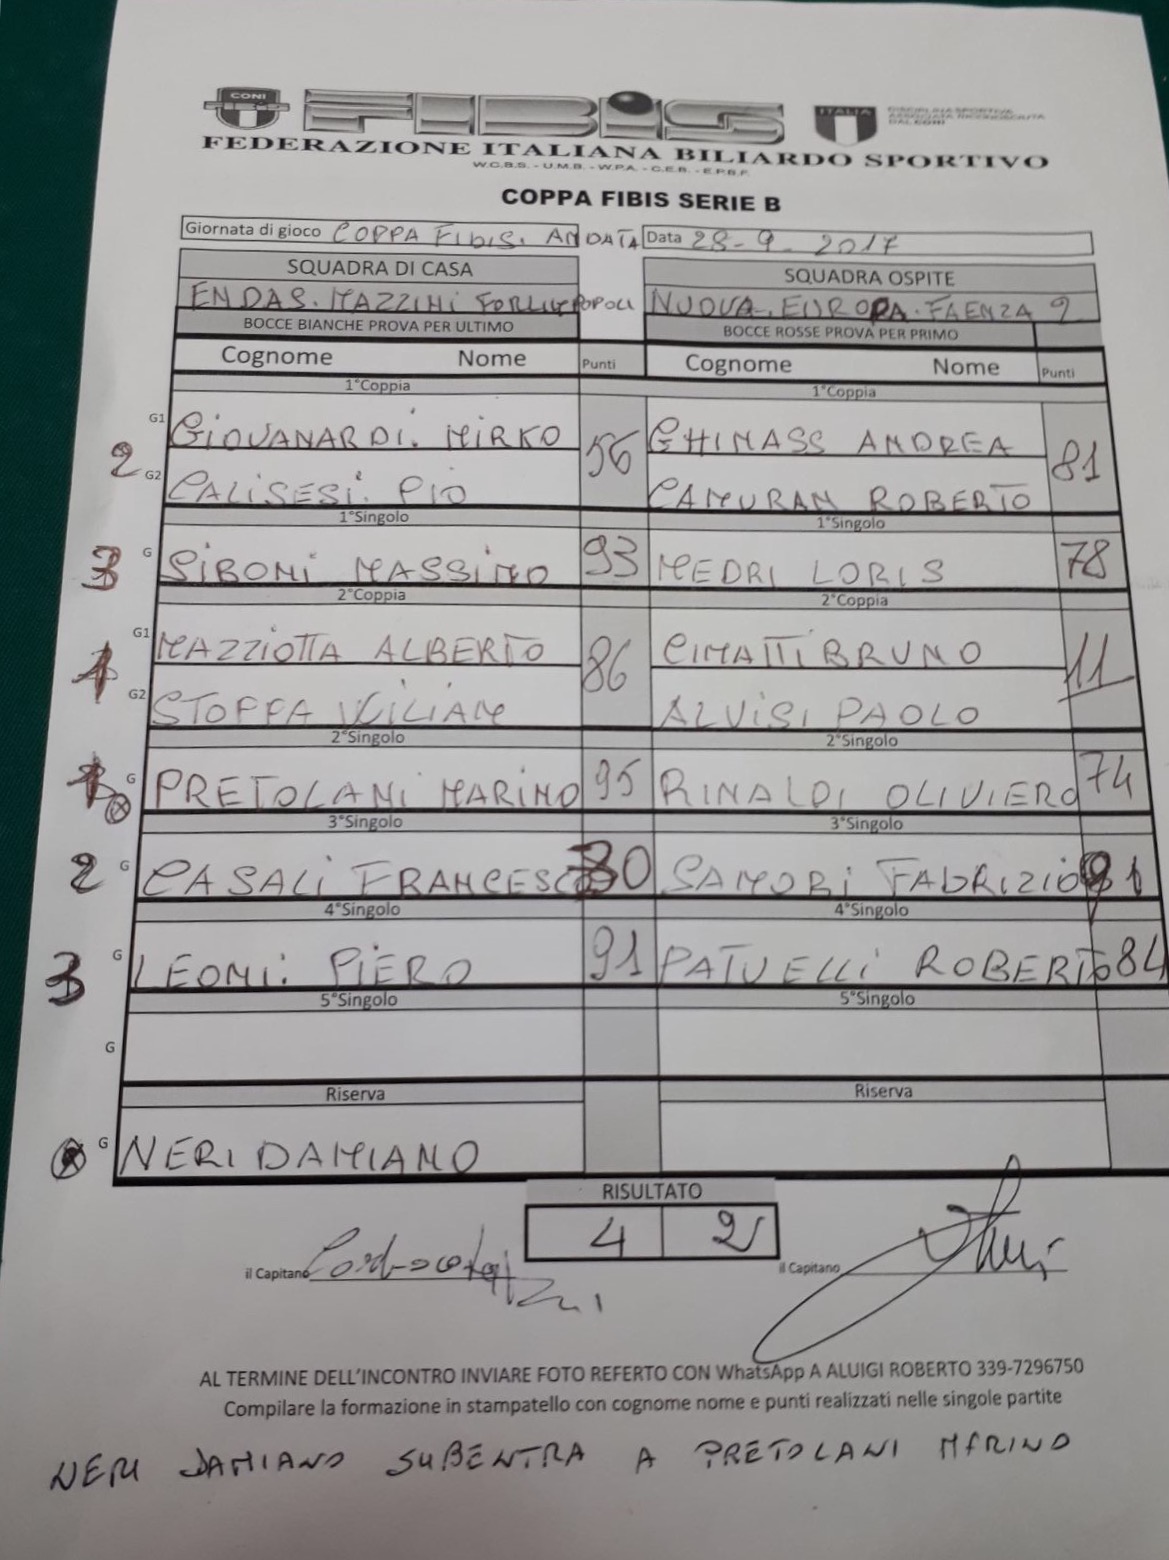 CONI FIBiS ITALIA DISCIPLINA SPORTIVA ASSOCIATA RICONOSCIUTA DAL CONI
FEDERAZIONE ITALIANA BILIARDO SPORTIVO
W.C.B.S. - U.M.B. - W.P.A. - C.E.B. - E.P.B.F.
COPPA FIBIS SERIE B
Giornata di gioco COPPA FIBIS. ANDATA Data 28-9-2017
SQUADRA DI CASA SQUADRA OSPITE
ENDAS. MAZZINI FORLIMPOPOLI NUOVA. EUROPA. FAENZA 2
BOCCE BIANCHE PROVA PER ULTIMO BOCCE ROSSE PROVA PER PRIMO
Cognome Nome Punti Cognome Nome Punti
1°Coppia 1°Coppia
G1 GIOVANARDI. MIRKO 56 GHINASS ANDREA 81
2 G2 CALISESI. PIO CAMURAN ROBERTO
1°Singolo 1°Singolo
3 G SIBONI MASSIMO 93 MEDRI LORIS 78
2°Coppia 2°Coppia
G1 MAZZIOTTA ALBERTO 86 CIMATTI BRUNO 11
1 G2 STOPPA WILIAM ALVISI PAOLO
2°Singolo 2°Singolo
G PRETOLANI MARINO 95 RINALDI OLIVIERO 74
3°Singolo 3°Singolo
2 G CASALI FRANCESCO 30 SAMORI FABRIZIO 91
4°Singolo 4°Singolo
3 G LEONI. PIERO 91 PATUELLI ROBERTO 84
5°Singolo 5°Singolo
G
Riserva Riserva
G NERI DAMIANO
RISULTATO
4 2
il Capitano il Capitano
AL TERMINE DELL'INCONTRO INVIARE FOTO REFERTO CON WhatsApp A ALUIGI ROBERTO 339-7296750
Compilare la formazione in stampatello con cognome nome e punti realizzati nelle singole partite
NERI DAMIANO SUBENTRA A PRETOLANI MARINO